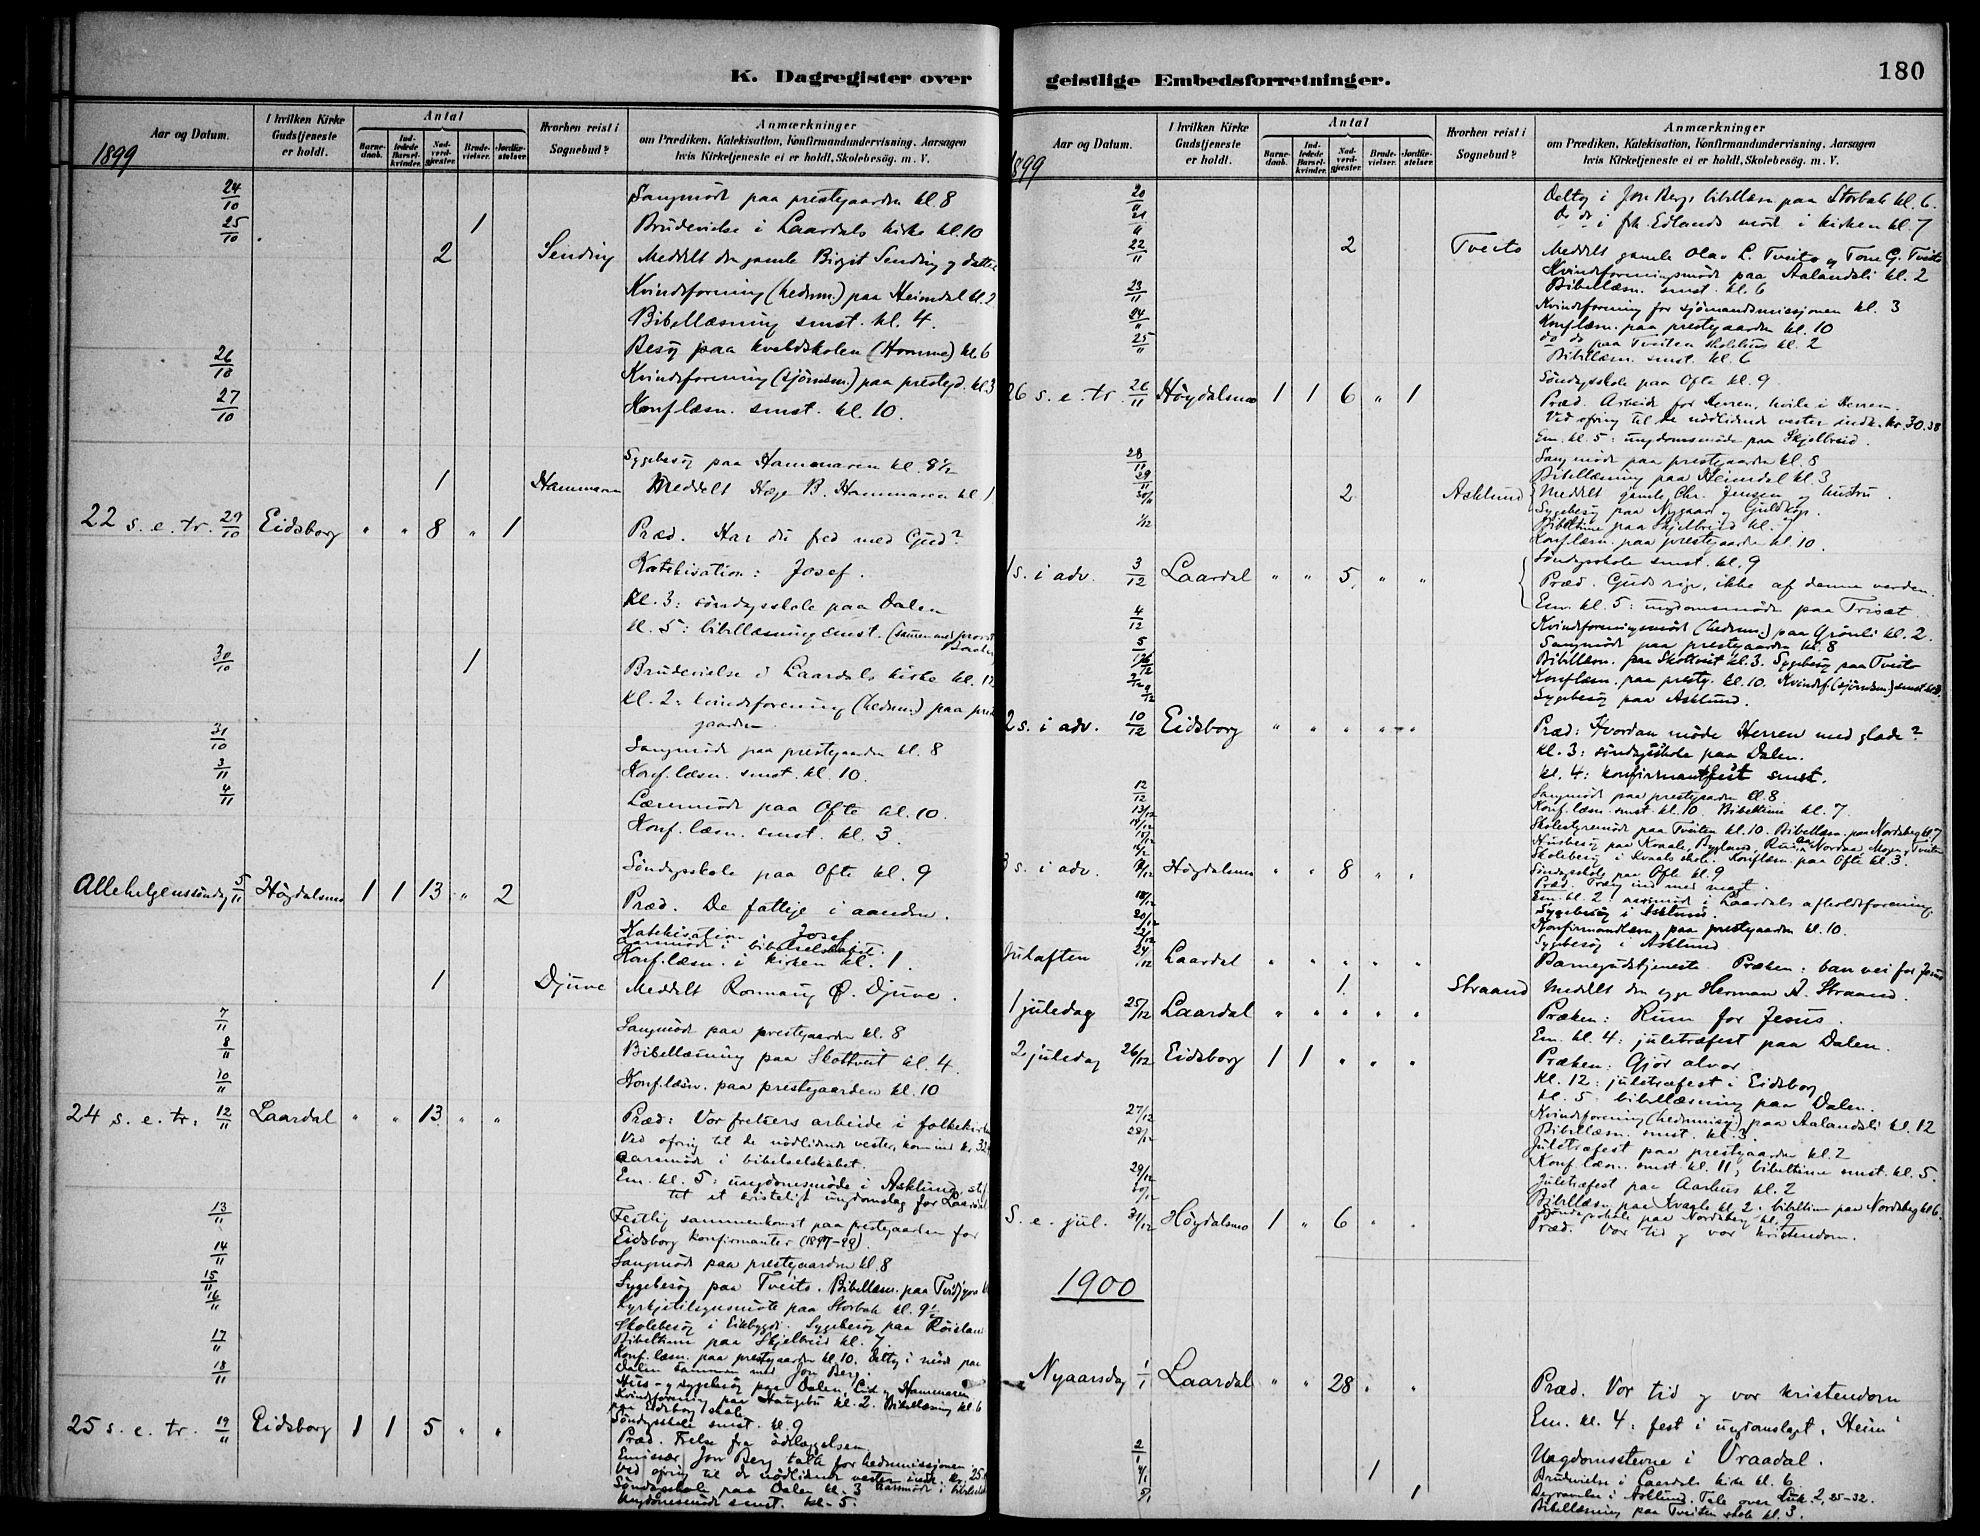 K. Dagregister over
Aar og Datum.
I hvilken Kirke Gudstjeneste er holdt.
Antal
Barnedaab.
Indledede Barselkvinder.
Nadverdgjester.
Brudevielser.
Jordfæstelser.
Hvorhen reist i Sognebud?
Anmærkninger
om Prædiken, Katekisation, Konfirmandundervisning, Aarsagen
hvis Kirketjeneste ei er holdt, Skolebesøg. m. V.
1899
24/10 Sangmøde paa prestegaarden kl. 8
25/10 1 Brudevielse i Laardals kirke kl. 10
2 Sending Meddelt den gamle Birgit Sending og datter
Kvindeforening (hednm.) paa Heimdal kl. 2
Bibellæsning smst. kl. 4.
Besøg paa kveldskolen (Homme) kl. 6
26/10 Kvindeforening (sjømdsm.) paa presteg. kl. 3
27/10 Konf.læsn. smst. kl. 10.
Sygebesøg paa Hammaren kl. 8 1/2
1 Hammaren Meddelt B. Hammaren kl. 1
22 s. e. tr. 29/10 Eidsborg " " 8 " 1 Præd. Har du fred med Gud?
Katekisation: Josef.
Kl. 3: søndagsskole paa Dalen
kl. 5: bibellæsning smst. (sammen med provst
30/10 1 Brudevielse i Laardals kirke kl. 12
kl. 2: kvindeforening (hednm.) paa preste
gaarden
31/10 Sangmøde paa prestegaarden kl. 8
3/11 Konf.læsn. smst. kl. 10.
4/11 Læremøde paa Ofte kl. 10.
Konf.læsn. smst. kl. 3
Søndagsskole paa Ofte kl. 9
Allehelgenssøndag 5/11 Høydalsmo 1 1 13 " 2 Præd. De fattige i aanden.
Katekisation: Josef
aarsmøde i bibelselskabet
Konf.læsn. i kirken kl. 1.
1 Djuve Meddelt Ronnaug Ø. Djuve.
7/11 Sangmøde paa prestegaarden kl. 8
8/11 Bibellæsning paa Skottveit kl. 4.
10/11 Konf.læsn. paa prestegaarden kl. 10
24 s. e. tr. 12/11 Laardal " " 13 " " Præd: Vor frelsers arbeide i folkekirken
Ved ofring til de nødlidende vester, kom ind kr. 32
aarsmøde i bibelselskabet.
Em. kl. 5: ungdomsmøde i Asklund,
til et kristeligt ungdomslag for Laardal
13/11 Festlig sammenkomst paa prestegaarden for
Eidsborg konfirmanter (1897-99).
14/11 Sangmøde paa prestegaarden kl. 8
15/11 Sygebesøg paa Tveito. Bibellæsn. paa
16/11 paa Storbak kl. 9 1/2
Skolebesøg i Eikbygdi. Sygebesøg paa Røislan
17/11 Bibeltime paa Skjelbreid kl. 7
Konf.læsn. paa prestegaarden kl. 10. Deltog i møde paa
18/11 Dalen sammen med Jon Berg.
Hus- og sygebesøg paa Dalen, Lid og Hammaren
Kvindeforening paa Haugebu kl. 2. Bibellæsning kl. 6
paa Eidsborg skole
Søndagsskole smst. kl. 9
25 s. e. tr. 19/11 Eidsborg 1 1 5 " " Præd. Frelse fra ødelæggelsen
Emissær Jon Berg talte for hedmissjonen
Ved ofring til de nødlidende vester indk. kr. 25
Søndagsskole paa Dalen kl. 3 aarsmøde i bibelselsk
Ungdomsmøde smst. kl. 5.
180
geistlige Embedsforretninger.
Aar og Datum.
I hvilken Kirke Gudstjeneste er holdt.
Antal
Barnedaab.
Indledede Barselkvinder.
Nadverdgjester.
Brudevielser.
Jordfæstelser.
Hvorhen reist i Sognebud?
Anmærkninger
om Prædiken, Katekisation, Konfirmandundervisning, Aarsagen
hvis Kirketjeneste ei er holdt, Skolebesøg. m. V.
1899
20/11 Deltog i Jon Bergs bibellæsn. paa Storbak kl. 6.
21/11 Do do i frk. Edlands møde i kirken kl 7
22/11 2 Tveito Meddelt gamle Olav L. Tveito og Tone G. Tveito
Kvindeforeningsmøde paa Aalandsli kl. 2
Bibellæsn. smst. kl. 6
23/11 Kvindeforening for sjømandsmissjonen kl. 3
24/11 Konf.læsn. paa prestegaarden kl. 10
25/11 do do paa Tveiten skolehus kl. 2
Bibellæsn. smst. kl. 6
Søndagsskole paa Ofte kl. 9.
26 s. e. tr. 26/11 Høydalsmo 1 1 6 " 1 Præd. Arbeide for Herren, hvile i Herren.
Ved ofring til de nødlidende vester indk. kr. 30.38
Em. kl. 5: ungdomsmøde paa Skjelbreid.
28/11 Sangmøde paa prestegaarden kl. 8
29/11 Bibellæsning paa Heimdal kl. 3
30/11 2 Asklund Meddelt gamle Chr. Jensen og hustru.
Sygebesøg paa Nygaard og Guldkop.
1/12 Bibeltime paa Skjelbreid kl. 7
Konf.læsn. paa prestegaarden kl. 10.
Søndagsskole smst. kl. 9
1 s. i adv. 3/12 Laardal " " 5 " " Præd. Guds rige, ikke af denne verden.
Em. kl. 5: ungdomsmøde paa Trisæt
4/12 Kvindeforeningsmøde (hednm.) paa Grønli kl. 2.
5/12 Sangmøde paa prestegaarden kl. 8
6/12 Bibellæsn. paa Skottveit kl. 3. Sygebesøg paa Tveito
Konf.læsn. paa presteg. kl. 10. Kvindef. (sjømdsm.) smst kl. 3.
9/12 Sygebesøg paa Asklund.
2 s. i adv. 10/12 Eidsborg " " " " " Præd: Hvordan møde Herren med glæde?
kl. 3: søndagsskole paa Dalen.
kl. 4: konfirmantfest smst.
12/12 Sangmøde paa prestegaarden kl. 8
13/12 Konf.læsn. smst. kl. 10. Bibeltime kl. 7.
14/12 Skolestyremøde paa Tveiten kl. 10. Bibellæsn. paa Nordsbø kl. 7
15/12 Husbesøg paa Kvaale, Bygland, Nordaa, Tveiten
16/12 Skolebesøg i Kvaals skole. Konf.læsn. paa Ofte kl. 3.
Søndagsskole paa Ofte kl. 9
3 s. i adv. 17/12 Høydalsmo " " 8 " " Præd. Træng ind med magt.
Em. kl. 2 aarsmød i Laardals afholdsforening.
18/12 Sygebesøg i Asklund.
20/12 Konfirmandlæsn. paa prestegaarden kl. 10.
Sygebesøg i Asklund
Juleaften 24/12 Laardal " " " " " Barnegudstjeneste. Præken: ban vei for Jesus
1 Straand Meddelt den syge Herman A. Straand.
1 juledag 25/12 Laardal " " " " " Præken: Rum for Jesus.
Em. kl. 4: juletræfest paa Dalen.
2 juledag 26/12 Eidsborg 1 1 " " " Præken: Gjør alvor
Kl. 12: juletræfest i Eidsborg
kl. 5 bibellæsning paa Dalen.
27/12 Kvindeforening (hedmiss) paa Aalandsli kl. 12
Bibellæsn. smst. kl. 3.
28/12 Juletræfest paa prestegaarden kl. 2
29/12 Konf.læsn. smst. kl. 11; bibeltime smst. kl. 5.
30/12 Juletræfest paa Aarhus kl. 2
Bibellæsn. paa Kvaale kl. 2. bibeltime paa Nordsbø kl. 6.
Søndagsskole paa Nordsbø kl. 9
S. e. jul. 31/12 Høydalsmo 1 " 6 " " Præd. Vor tid og vor kristendom.
1900
Nyaarsdag 1/1 Laardal " " 28 " " Præd. Vor tid og vor kristendom
Em. kl. 4: fest i ungdomslaget "Heim"
2/1 Ungdomsstevne i Vraadal.
4/1 1 Brudevielse i Laardals kirke kl. 6
5/1 1 Begravelse i Asklund. Tale over Luk. 2, 25-32.
Bibellæsning paa Tveiten skole kl. 3.